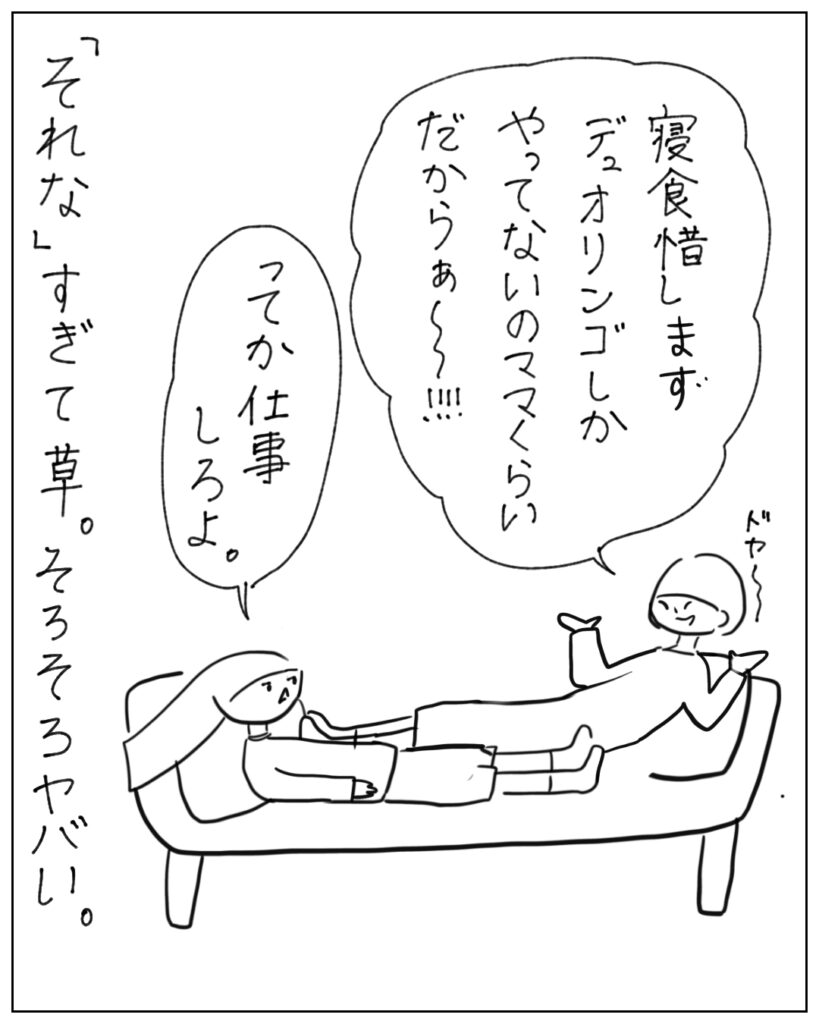 寝食惜しまず
デュオリンゴしか
やってないのママくらい
だからぁ〜〜!!!!
ってか仕事
しろよ。
ドヤ〜
「それな」すぎて草。そろそろヤバい。